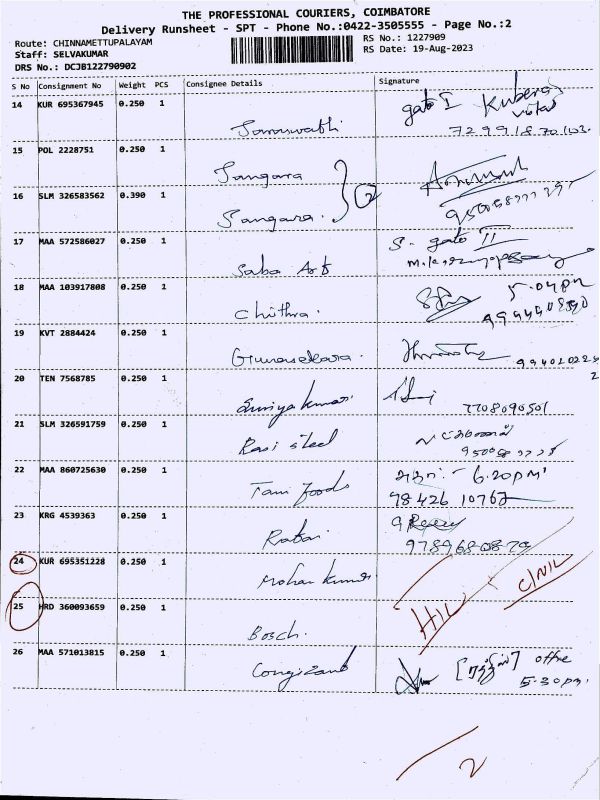 THE PROFESSIONAL COURIERS, COIMBATORE
Delivery Runsheet - SPT - Phone No.:0422-3505555 - Page No.:2
Route: CHINNAMETTUPALAYAM
RS No.: 1227909
Staff: SELVAKUMAR
RS Date: 19-Aug-2023
DRS No.: DCJB122790902
S No Consignment No Weight PCS Consignee Details Signature
14 KUR 695367945 0.250 1 gate I
Saraswathi
15 POL 2228751 0.250 1 Sangara
16 SLM 326583562 0.390 1 Sangara. 2
17 MAA 572586027 0.250 1 S. gate II
Saba Art
18 MAA 103917808 0.250 1 5.04pm
Chithra.
19 KVT 2884424 0.250 1
Gunasekara.
20 TEN 7568785 0.250 1
Suriyakumar 7708090501
21 SLM 326591759 0.250 1
Rasi steel
22 MAA 860725630 0.250 1 6.20pm
Tam foods 78426 10767
23 KRG 4539363 0.250 1
Ratai 9789680879
24 KUR 695351228 0.250 1 C/NIL
Mohan kumar
25 HRD 360093659 0.250 1 H/L
Bosch.
26 MAA 571013815 0.250 1 office
Congizant 5.30pm.
2